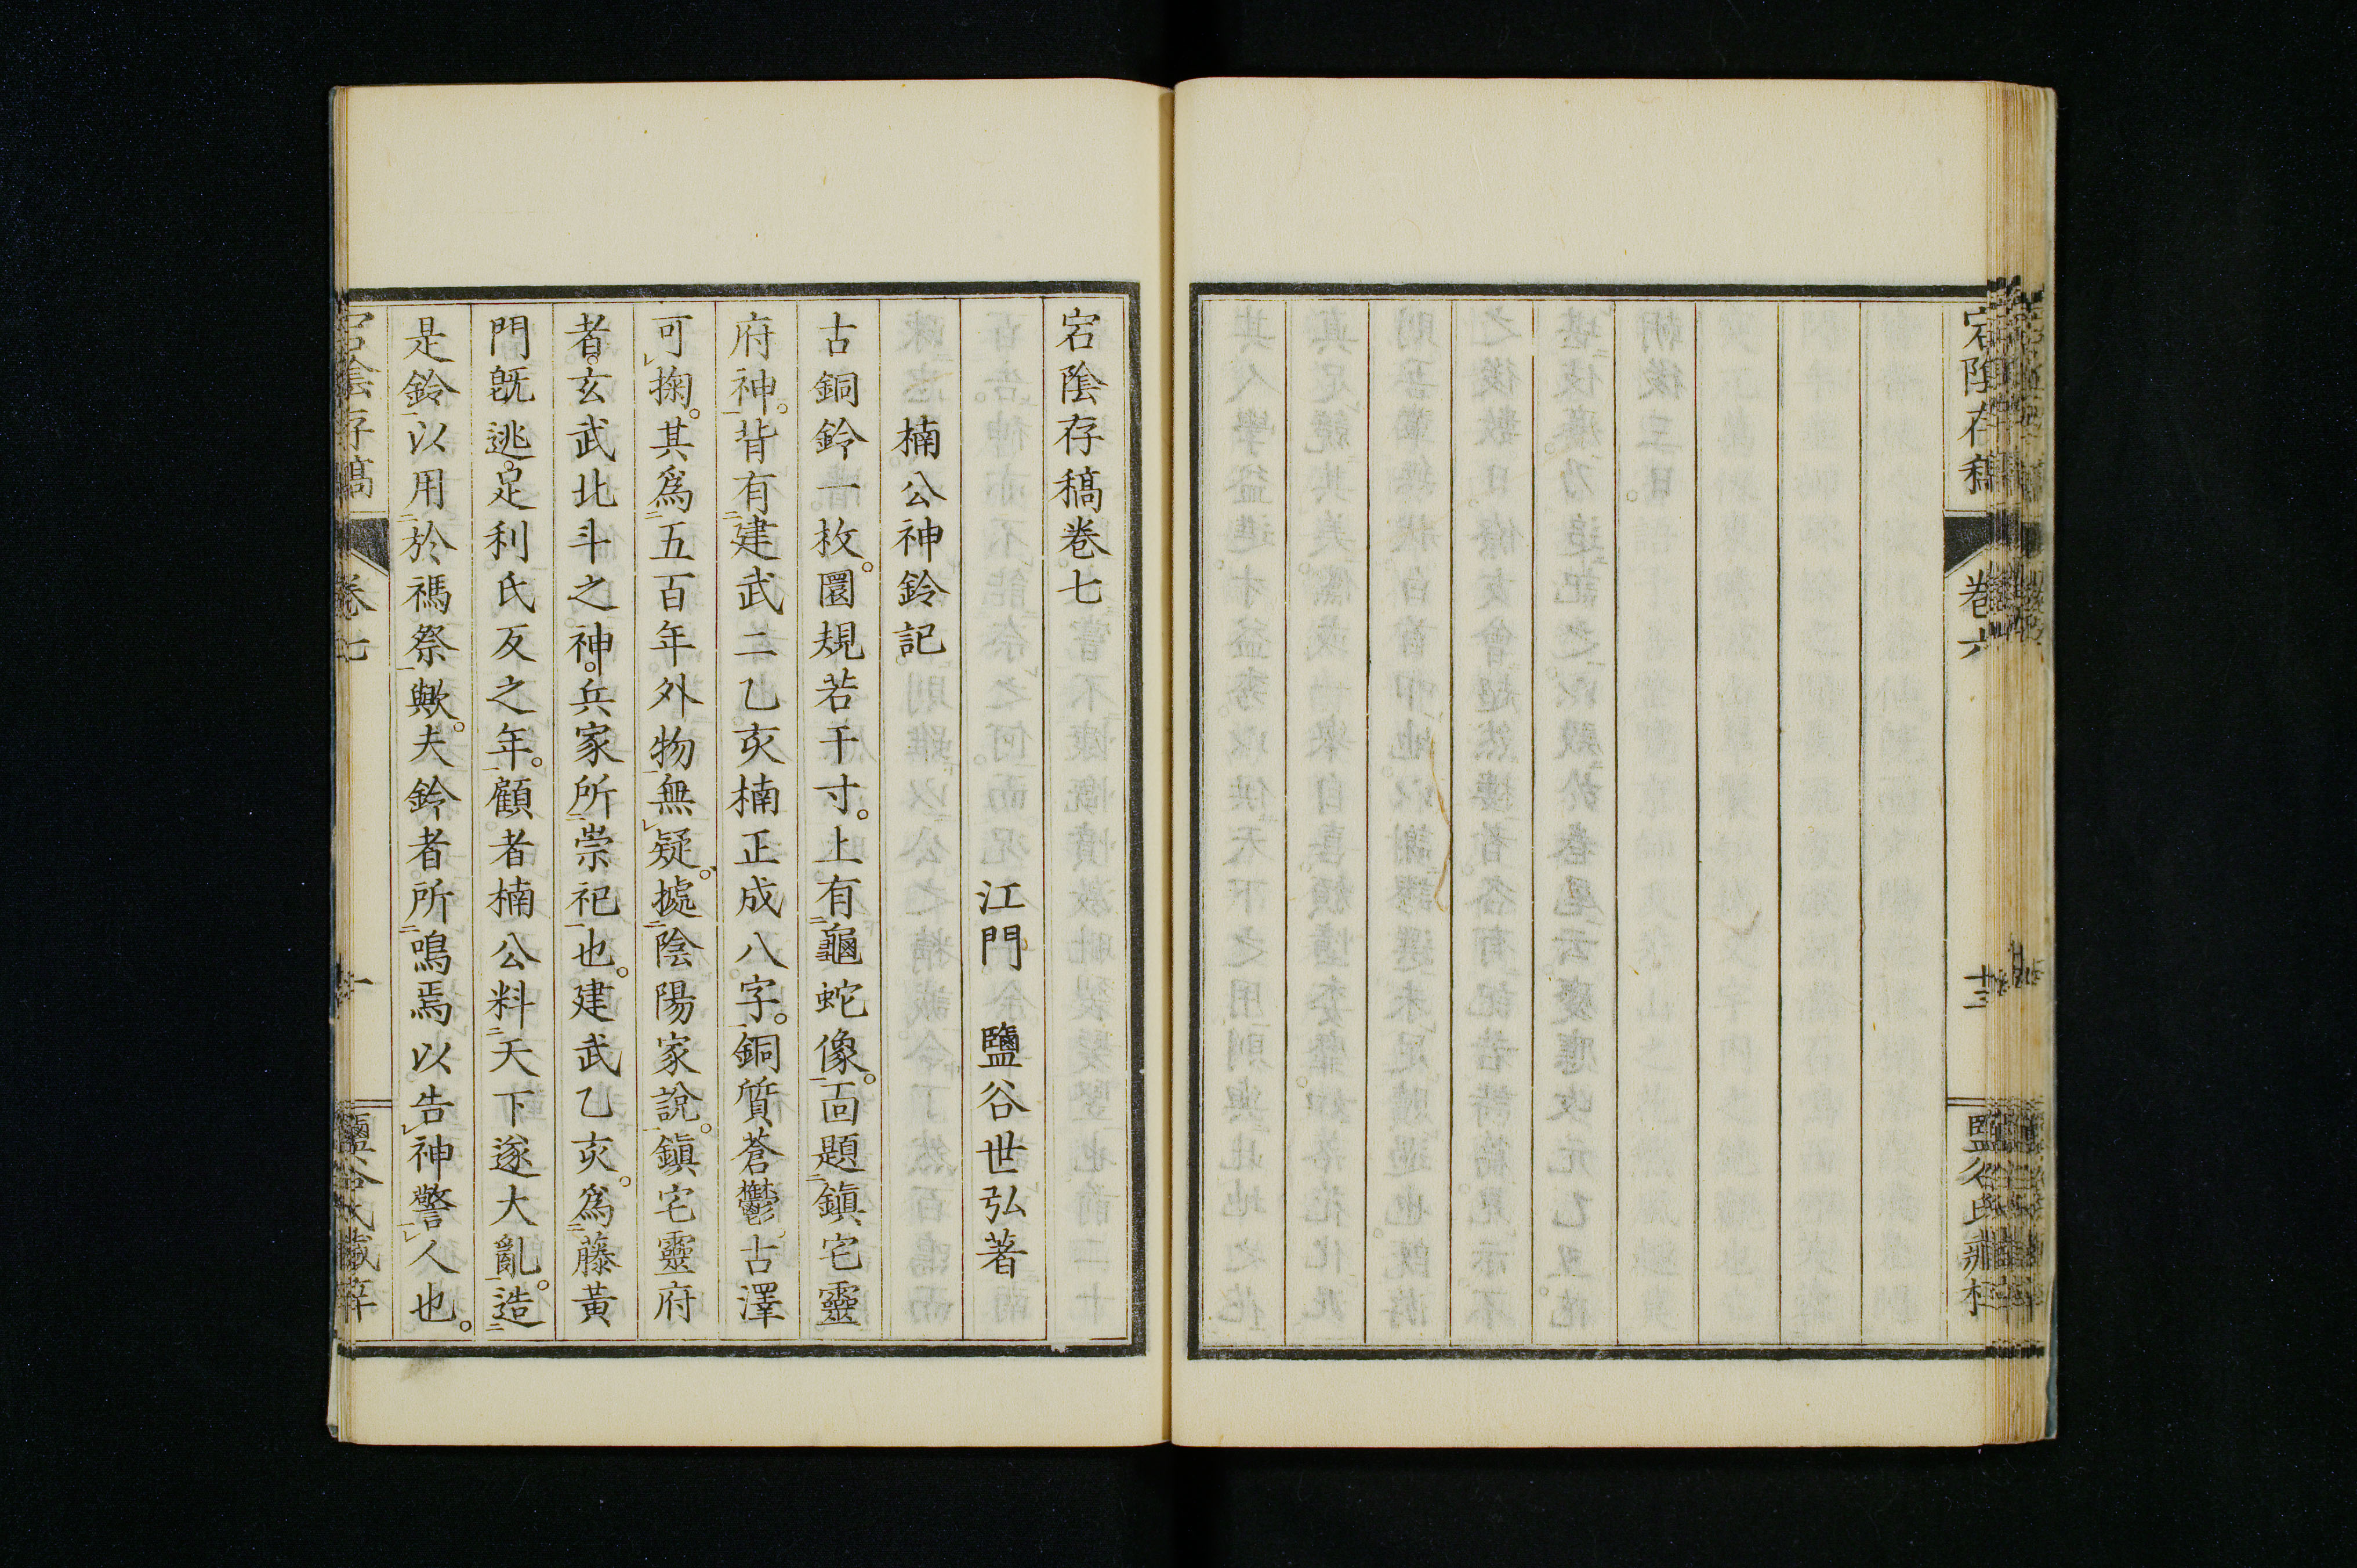 宕陰存稿
卷六
十三
宕陰存稿卷七
江門　鹽谷世弘著
楠公神鈴記
古銅鈴一枚。圜規若干寸。上有二龜蛇像一。面題二鎭宅靈
府神一。背有二建武二乙亥楠正成八字一。銅質蒼鬱。古澤
可レ掬。其爲二五百年外物一無レ疑。據二陰陽家說一。鎭宅靈府
者。玄武北斗之神。兵家所二崇祀一也。建武乙亥。爲二藤黃
門旣逃。足利氏反之年一。顧者楠公料二天下遂大亂一。造二
是鈴一以用二於禡祭一歟。夫鈴者所二鳴焉以告レ神警一レ人也。
宕陰存稿
卷七
一
鹽谷氏藏梓